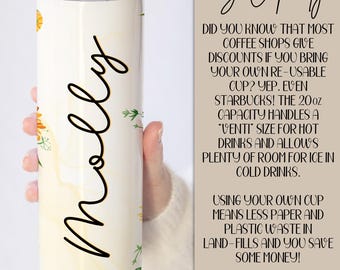 Molly
DID YOU KNOW THAT MOST
COFFEE SHOPS GIVE
DISCOUNTS IF YOU BRING
YOUR OWN RE-USABLE
CUP? YEP. EVEN
STARBUCKS! THE 20oz
CAPACITY HANDLES A
"VENTI" SIZE FOR HOT
DRINKS AND ALLOWS
PLENTY OF ROOM FOR ICE IN
COLD DRINKS.
USING YOUR OWN CUP
MEANS LESS PAPER AND
PLASTIC WASTE IN
LAND-FILLS AND YOU SAVE
SOME MONEY!